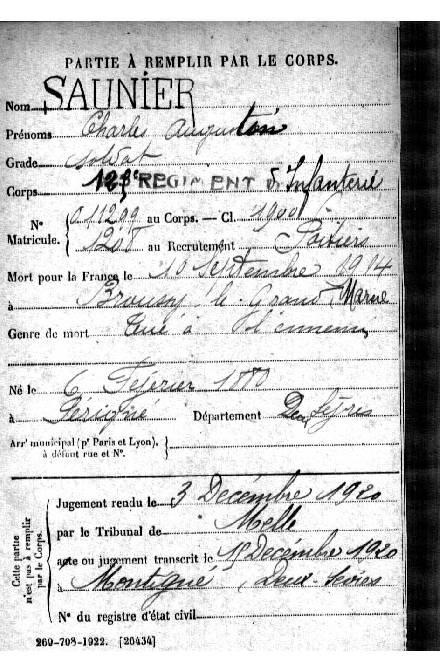 PARTIE À REMPLIR PAR LE CORPS.
Nom SAUNIER
Prénoms Charles Augustin
Grade soldat
Corps 123e REGIMENT d'Infanterie
N° Matricule. { 011299 au Corps. — Cl. 1900
1208 au Recrutement Poitiers
Mort pour la France le 10 Septembre 1914
à Broussy le Grand, Marne
Genre de mort Tué à l'ennemi
Né le 6 Février 1880
à Périgné Département Deux Sèvres
Arrt municipal (pr Paris et Lyon),
à défaut rue et N°.
Cette partie n'est pas à remplir par le Corps.
Jugement rendu le 3 Décembre 1920
par le Tribunal de Melle
acte ou jugement transcrit le 15 Décembre 1920
à Montigné, Deux-Sèvres
N° du registre d'état civil
269-708-1922. [26434]